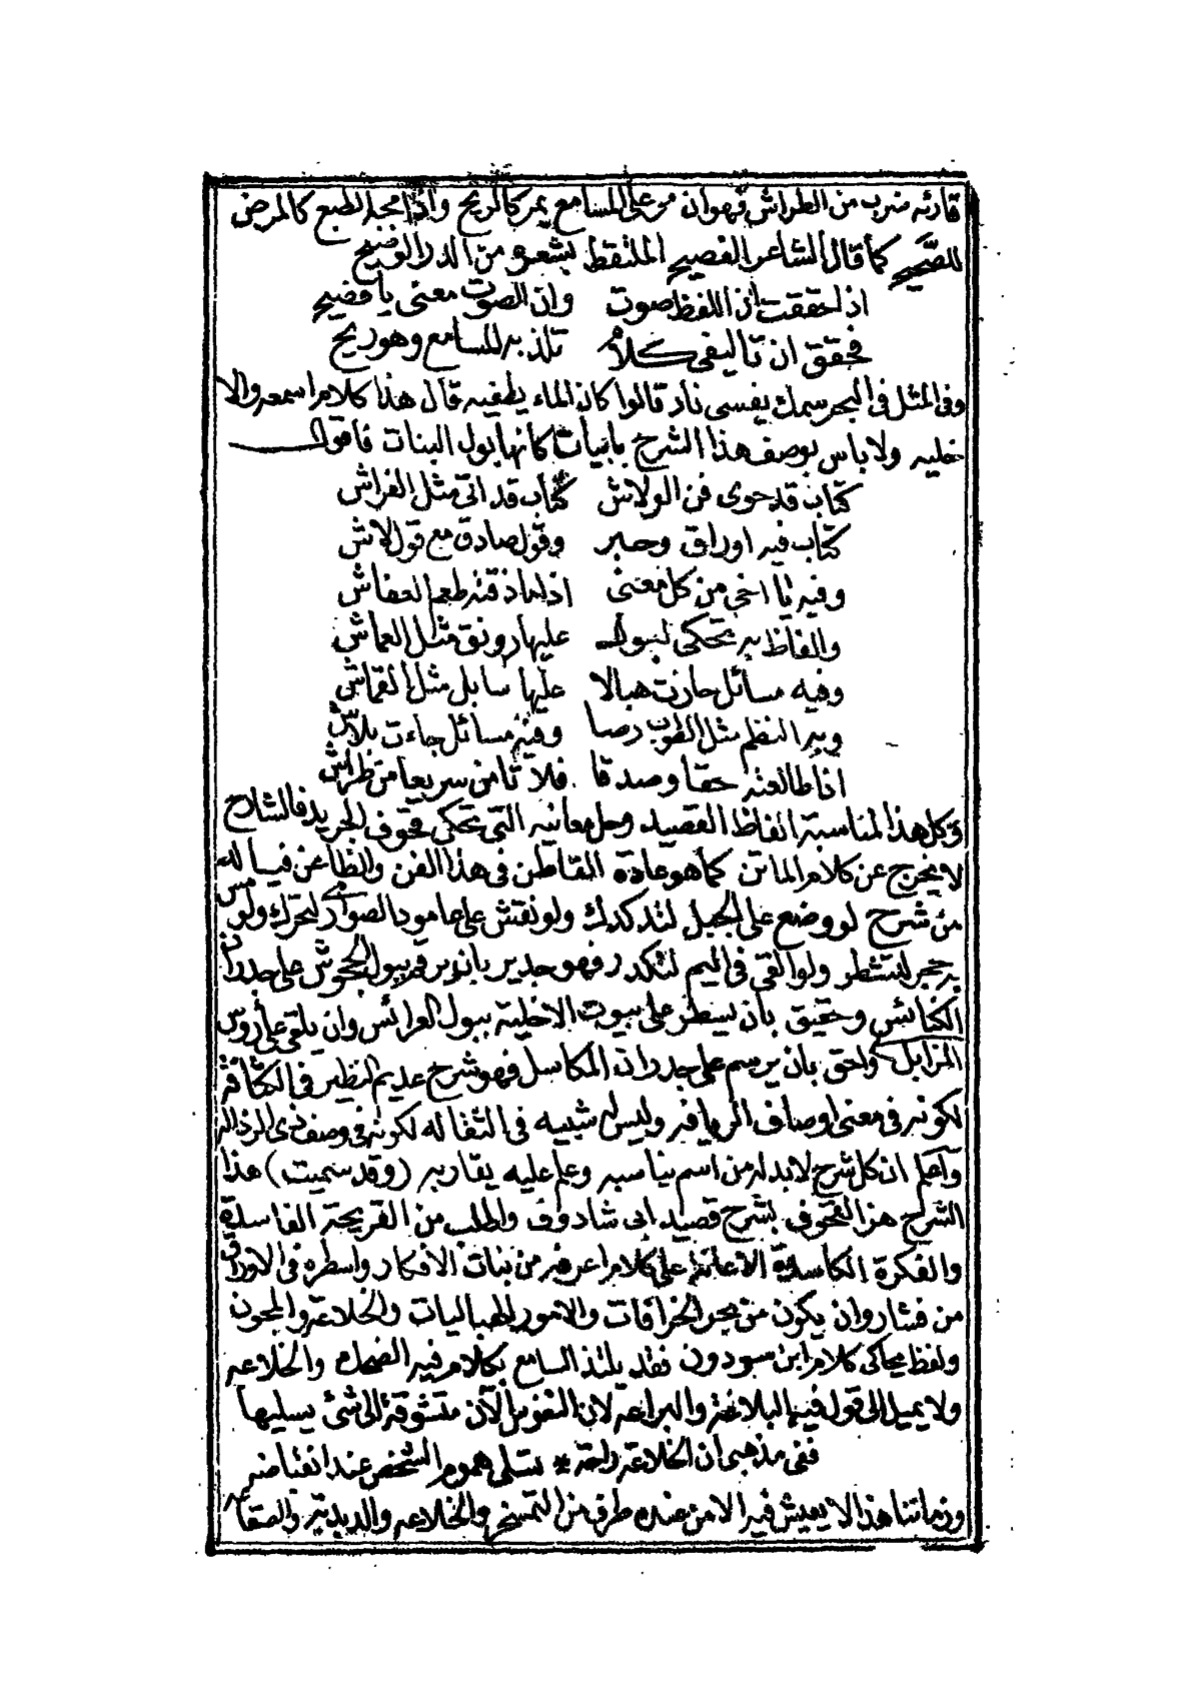 قارئه ضرب من الطراش فهو ان مر على المسامع يمر كالريح واذا مجه الطبع كالمرض
للصحيح كما قال الشاعر الفصيح الملتقط بشعره من الدر الوضيح
اذا حققت ان اللفظ صوت وان الصوت معنى يا فضيح
فحقق ان تاليفى كلام تلذ به المسامع وهو ريح
وفى المثل فى البحر سمك يفسى نار قالوا كان الماء يطفيه قال هذا كلام اسمعه والا
خليه ولا باس بوصف هذا الشرح بابيات كانها بول البنات فاقول
كتاب قد حوى فن الولاش كتاب قد اتى مثل الفراش
كتاب فيه اوراق وحبر وقول صادق مع قول لاش
وفيه يا اخى من كل معنى اذا ما ذقته طعم العفاش
والفاظ به تحكى لبول عليها رونق مثل العماش
وفيه مسائل حازت هبالا عليها سابل مثل القماش
وبه النظم مثل الطوب رصا وفيه مسائل جاءت بلاش
اذا طالعته حقا وصدقا فلا تامن سريعا من طراش
وكل هذا المناسبة الفاظ القصيد وحل معانيه التى تحكى قحوف الجريد فالشارح
لا يخرج عن كلام الماتن كما هو عادة القاطن فى هذا الفن والظاعن فيا له
من شرح لو وضع على الجبل لتدكدك ولو نقش على عامود الصوارى لتحرك ولو مس
به حجر لتشطر ولو القى فى اليم لتكدر فهو جدير بان يرقم ببول الجحوش على جدران
الكنائس وحقيق بان يسطر على بيوت الاخلية ببول العرائس وان يلقى على رؤس
المزابل واحق بان يرسم على جدران المكاسل فهو شرح عديم النظير فى الكثافة
لكونه فى معنى اوصاف الريافه وليس له شبيه فى الثقاله لكونه فى وصف ذى الرذاله
واعلم ان كل شرح لابد له من اسم يناسبه وعلم عليه يقاربه (وقد سميت) هذا
الشرح هز القحوف بشرح قصيد ابى شادوف واطلب من القريحة الفاسدة
والفكرة الكاسدة الاعانة على كلام اعرفه من بنات الافكار واسطره فى الاوراق
من فشار وان يكون من بحر الخرافات والامور الهباليات والخلاعة والمجون
ولفظ يحاكى كلام ابن سودون فقد يلتذ السامع بكلام فيه الضحك والخلاعه
ولا يميل الى قول فيه البلاغة والبراعه لان النفوس الآن متشوقة الى شئ يسليها
ففى مذهبى ان الخلاعة راحة * تسلى هموم الشخص عند انقباضه
وزماننا هذا لا يعيش فيه الا من عنده طرف من التمسخر والخلاعه والدبدبة والصقاعه